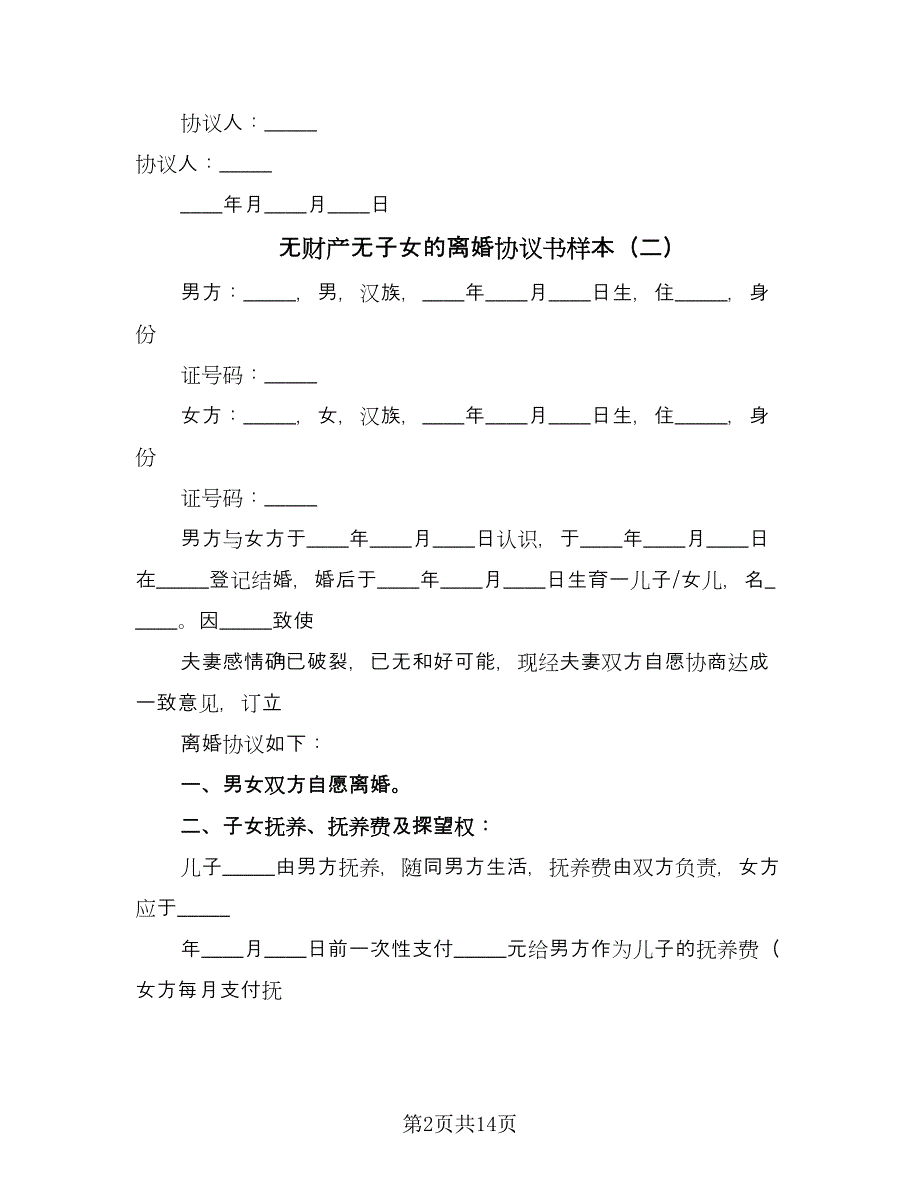 协议人：_____
协议人：_____
____年月____月____日
无财产无子女的离婚协议书样本（二）
男方：_____，男，汉族，____年____月____日生，住_____，身
份
证号码：_____
女方：_____，女，汉族，____年____月____日生，住_____，身
份
证号码：_____
男方与女方于____年____月____日认识，于____年____月____日
在_____登记结婚，婚后于____年____月____日生育一儿子/女儿，名_
____。因_____致使
夫妻感情确已破裂，已无和好可能，现经夫妻双方自愿协商达成
一致意见，订立
离婚协议如下：
一、男女双方自愿离婚。
二、子女抚养、抚养费及探望权：
儿子_____由男方抚养，随同男方生活，抚养费由双方负责，女方
应于_____
年____月____日前一次性支付_____元给男方作为儿子的抚养费（
女方每月支付抚
第2页共14页